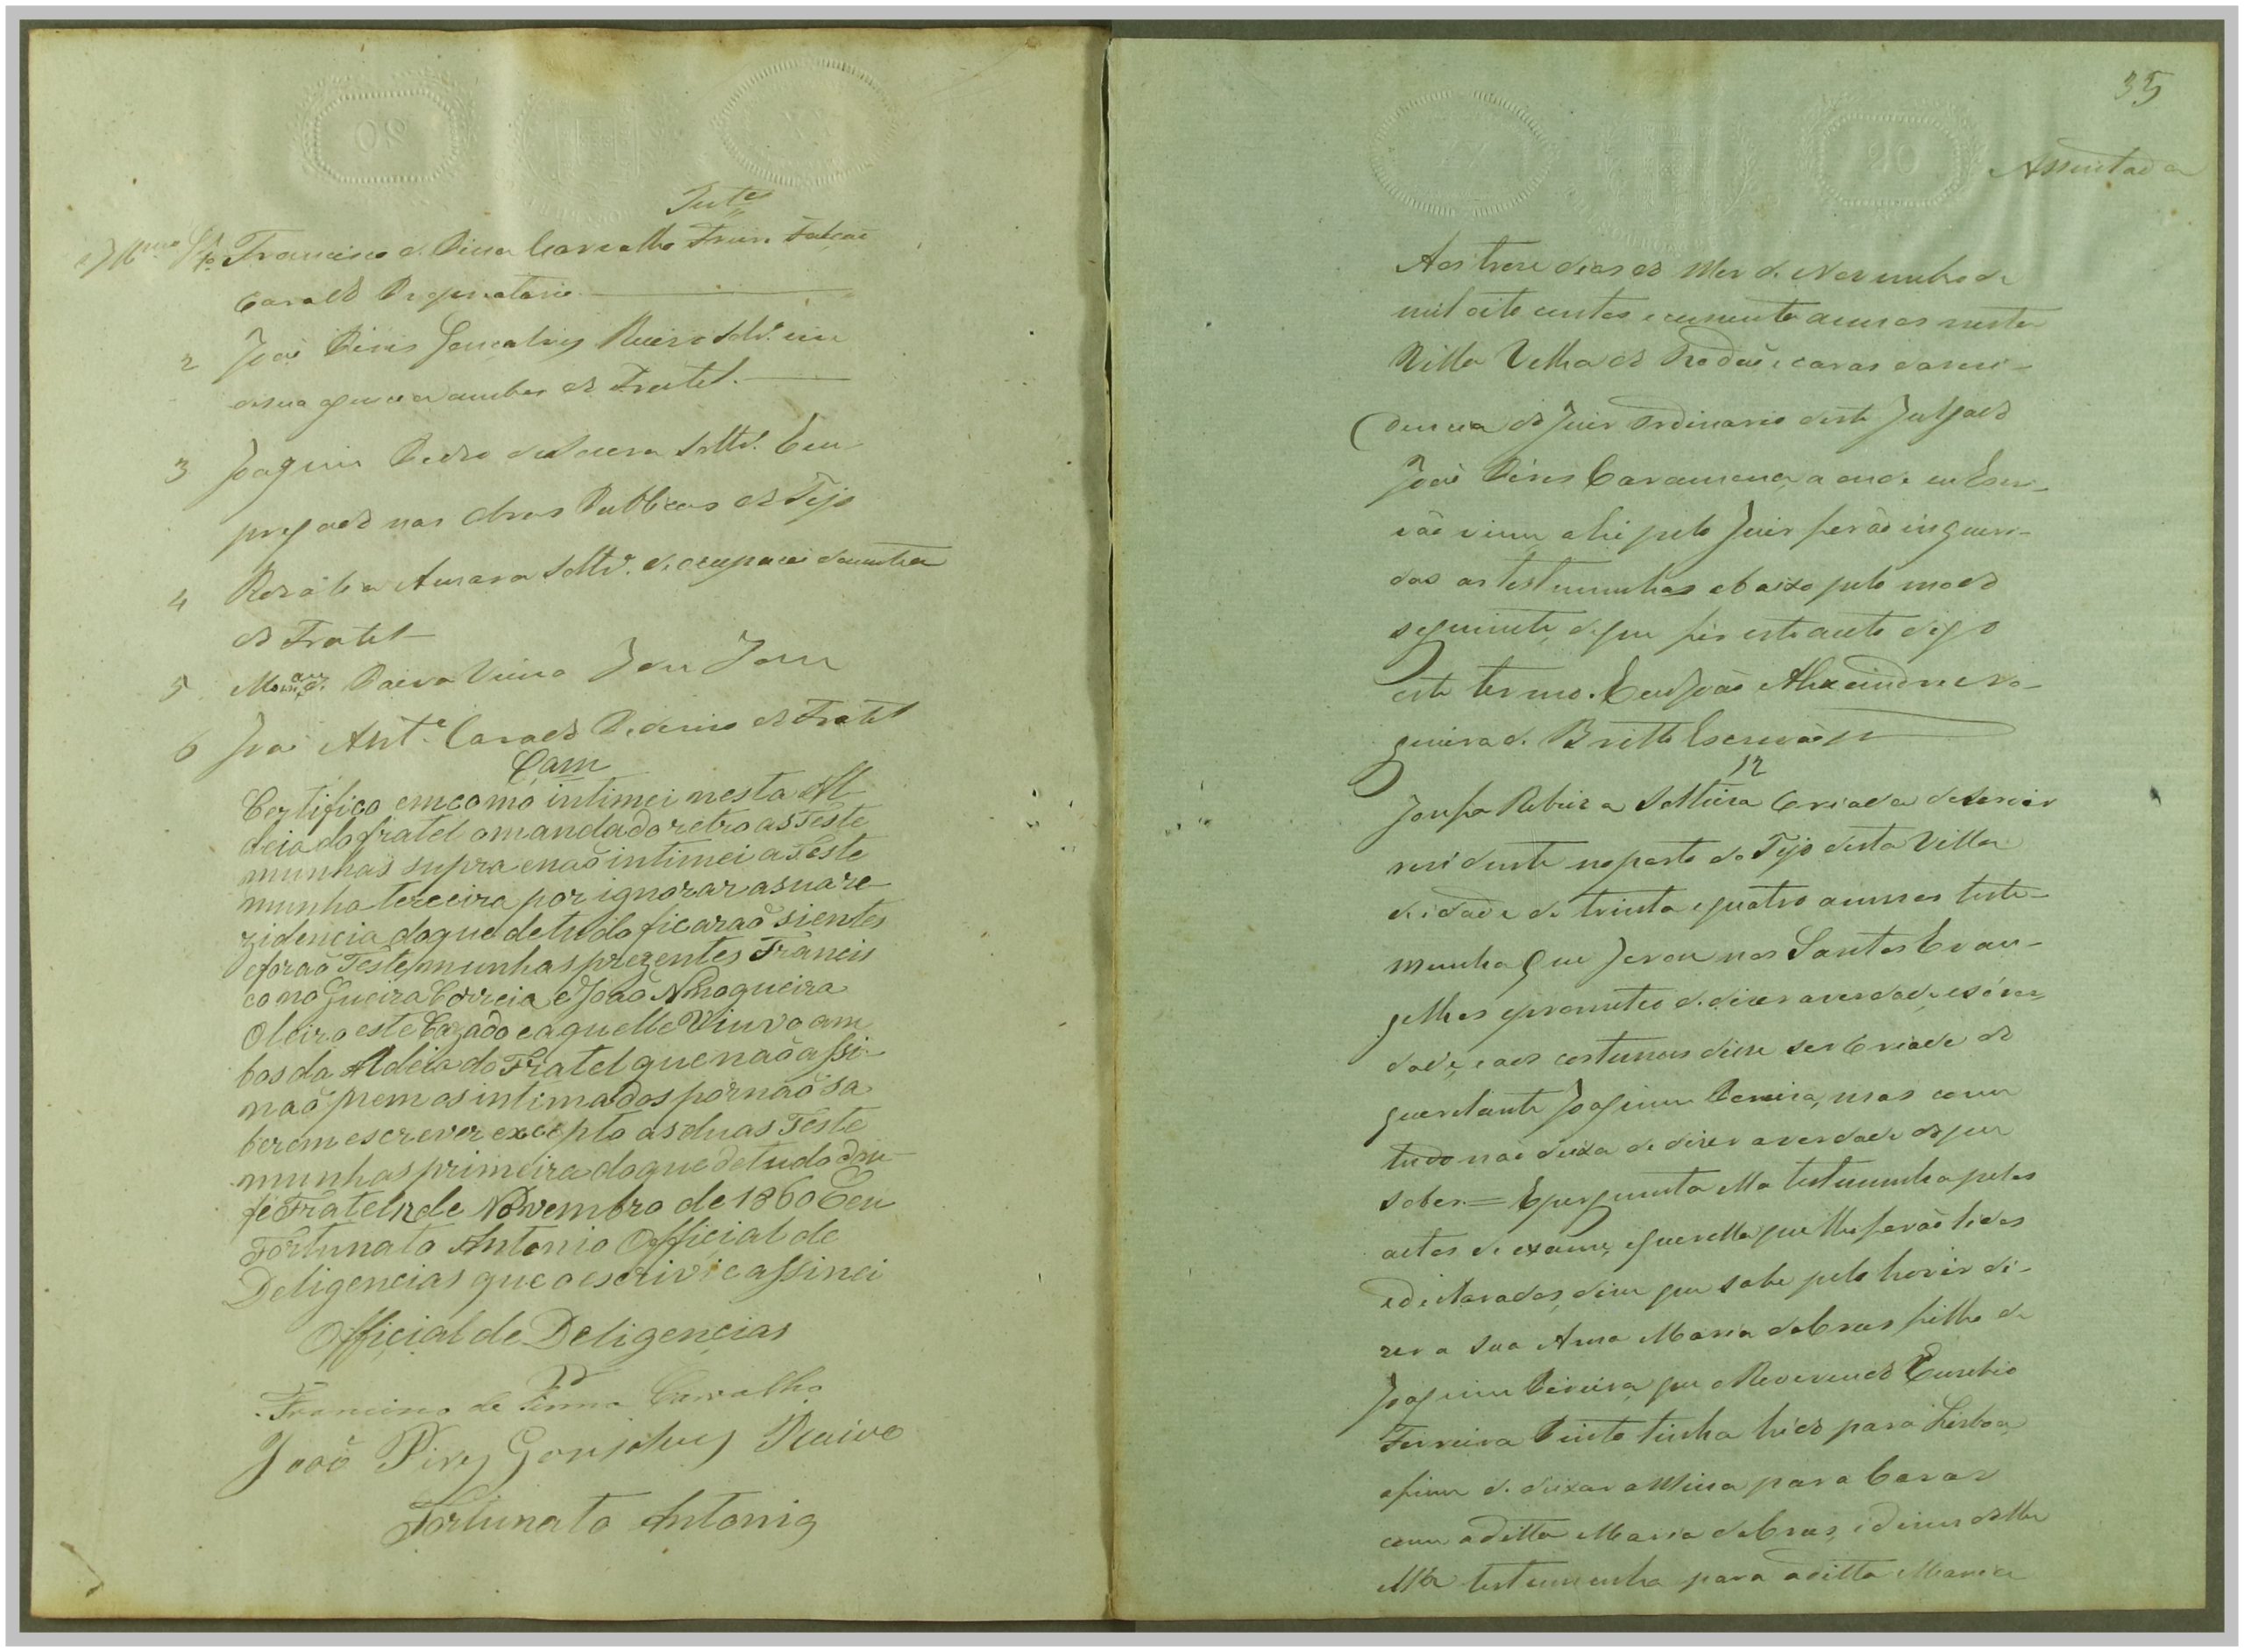 Test.as
Francisco de Pina Carvalho Freire Falcão
Casado Proprietario
2 João Pires Gonçalves Raivo Solt.º vive
de sua agencia ambos do Fratel.
3 Joaquim Pedro de Solt.º Em-
pregado nas obras Publicas do Tejo
4 Rozalia Amara Solt.ª de occupação domestica
do Fratel
5 Paiva Viuva Idem Idem
6 João Ant.º Casado do Fratel
Certifico em como intimei nesta Al
deia do fratel o mandado retro as Teste
munhas supra e naõ intimei a Teste
munha terceira por ignorar a sua re-
zidencia do que de tudo ficaraõ sientes
e foraõ Testemunhas prezentes Francis
co nogueira Correia e Joaõ Nnogueira
Oleiro este Cazado e aquelle Viuvo am
bos da Aldeia do Fratel que naõ assi-
naõ nem os intimados por naõ sa
berem escrever excepto as duas Teste
munhas primeira do que de tudo dou
fé Fratel de Novembro de 1860 E eu
Fortunato Antonio Official de
Deligencias que o escrivi e assinei
Official de Deligencias
Francisco de Pinna Carvalho
Joaõ Pires Gonsalves Raivo
Fortunato Antonio
35
Assentada
Aos treze dias do Mez de Novembro de
mil oito centos e cessenta annos nesta
Villa Velha do Rodaõ e casas da resi-
dencia do Juiz Ordinario deste Julgado
João Pires Caramona, a onde eu Escri-
vão vim ahi pelo Juiz forão inqueri-
das as testemunhas abaixo pelo modo
seguinte, de que fiz este auto digo
este termo. E eu João Alexandre No-
gueira de Britto Escrivão
12
Josefa Ribeira Solteira Criada de servir
rezidente no porto do Tejo desta Villa
de idade de trinta e quatro annos teste-
munha que Jurou nos Santos Evan-
gelhos e prometeo de dizer a verdade e só ver-
dade, e aos costumes disse ser Criada do
querelante Joaquim Pereira, mas com
tudo não deixa de dizer a verdade do que
souber = E perguntada ella testemunha pelos
autos de exame, e querella que lhe forão lidos
e declarados, disse que sabe pelo houvir di-
zer a sua Ama Maria da Cruz filha de
Joaquim Pereira, que o Reverendo Euzebio
Ferreira Pinto tinha hido para Lisboa,
afim de deixar a Missa para Casar
com a ditta Maria da Cruz, e disse
ella testemunha para a ditta Maria